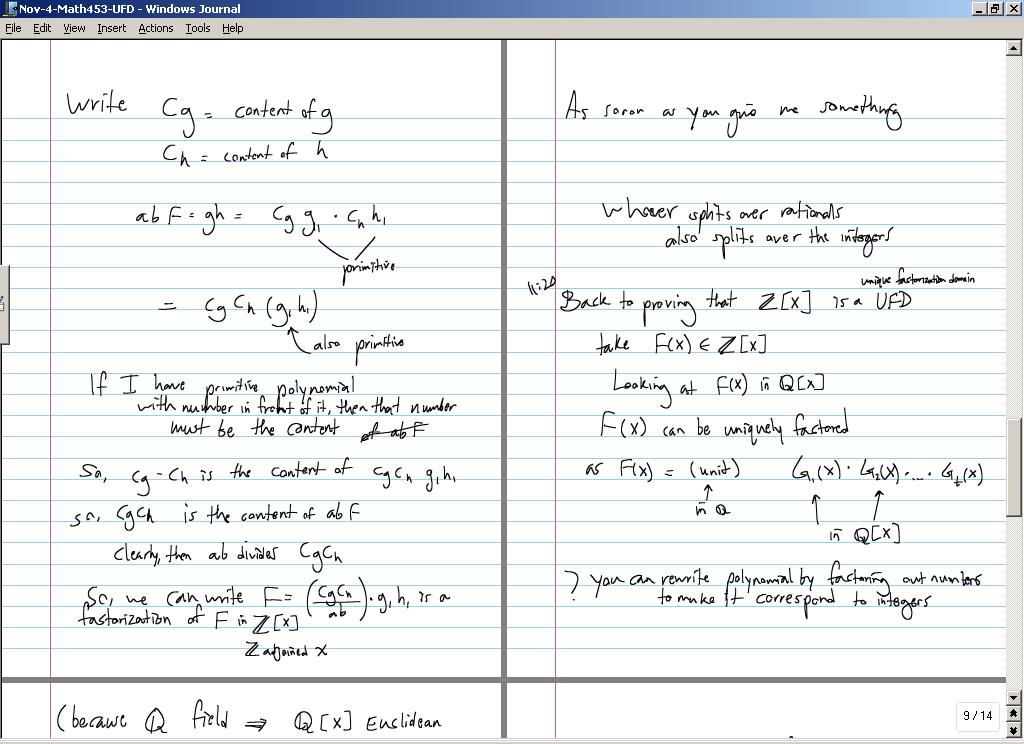 Nov-4-Math453-UFD - Windows Journal
File Edit View Insert Actions Tools Help
Write Cg = content of g
Ch = content of h
abF = gh = Cg g₁ · Ch h₁
primitive
= Cg Ch (g₁h₁)
also primitive
If I have primitive polynomial
with number in front of it, then that number
must be the content of abF
So, Cg · Ch is the content of CgCh g₁h₁
so, CgCh is the content of abF
clearly, then ab divides CgCh
So, we can write F = (CgCh/ab) · g₁h₁ is a
factorization of F in ℤ[x]
ℤ adjoined x
(because ℚ field ⇒ ℚ[x] Euclidean
As soon as you give me something
whatever splits over rationals
also splits over the integers
unique factorization domain
11:20 Back to proving that ℤ[x] is a UFD
take F(x) ∈ ℤ[x]
Looking at F(x) in ℚ[x]
F(x) can be uniquely factored
as F(x) = (unit) G₁(x) · G₂(x) · ... · Gt(x)
in ℚ
in ℚ[x]
? you can rewrite polynomial by factoring out numbers
to make it correspond to integers
9 / 14